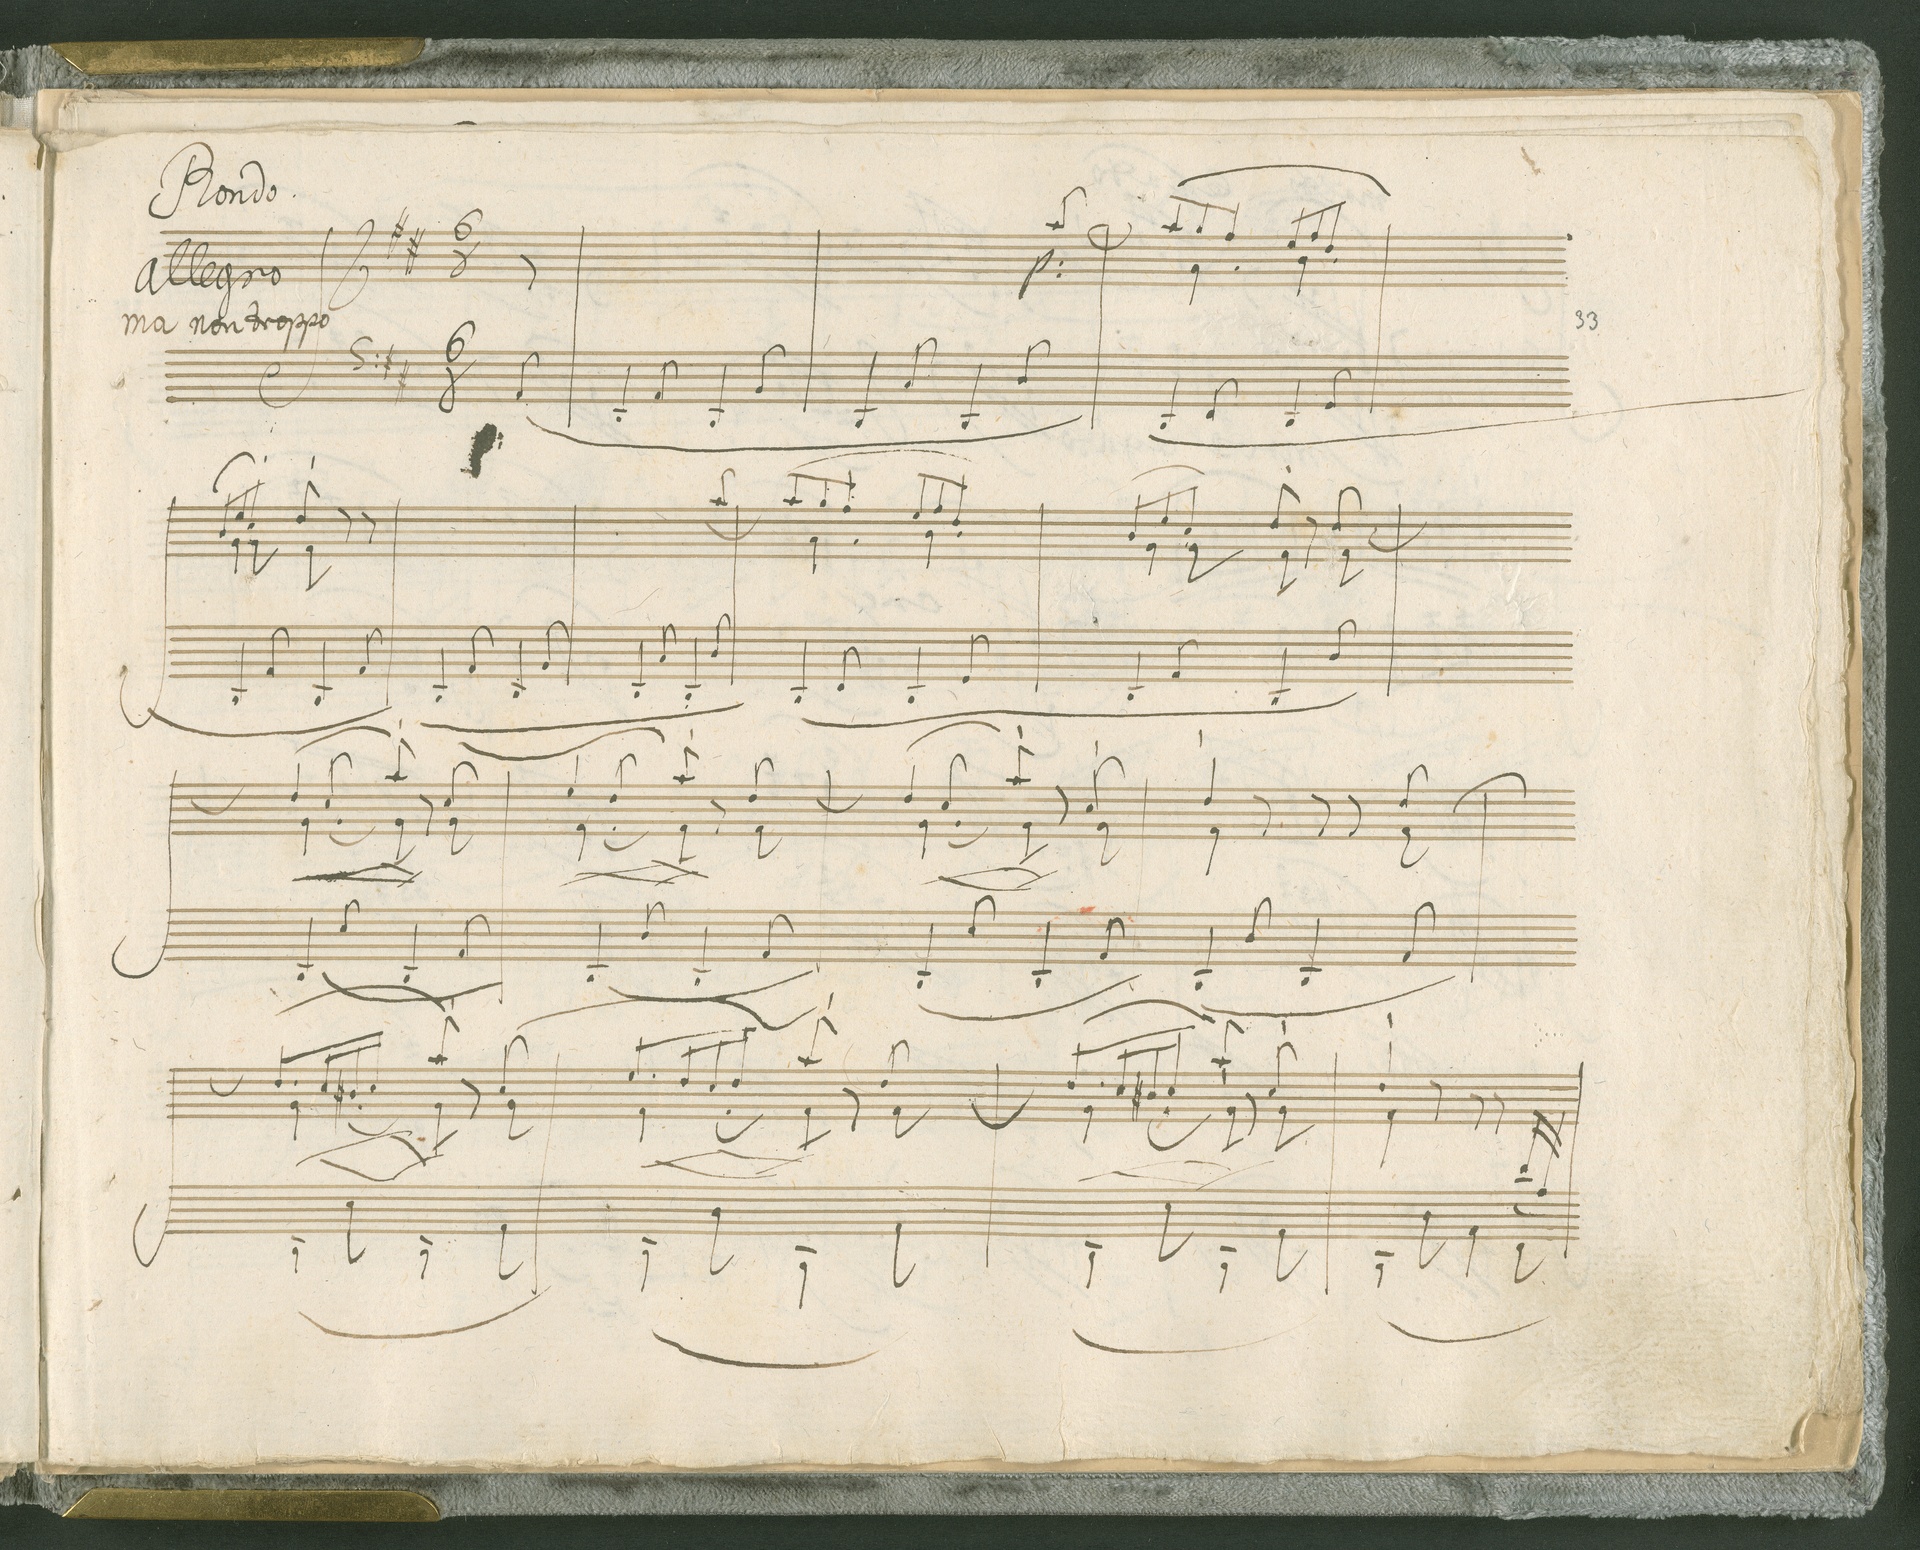 Rondo.
allegro
ma non troppo
6
8
p:
33
6
8